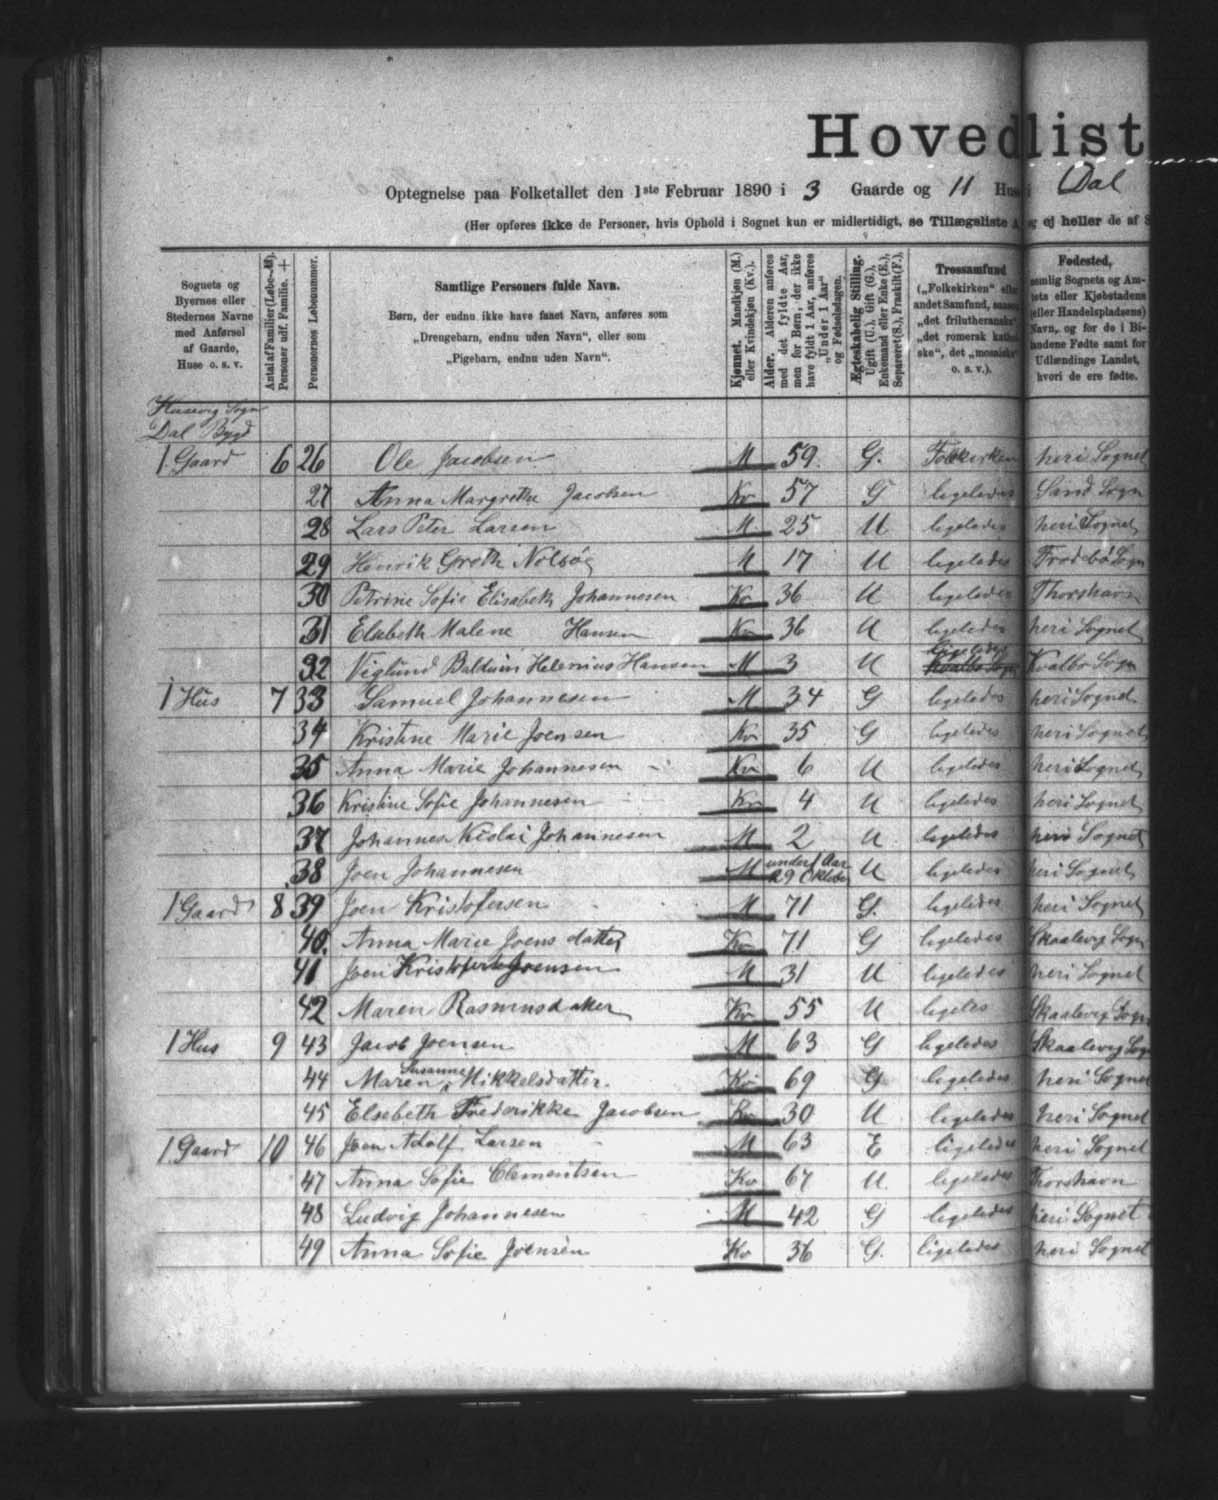 Hovedlist
Optegnelse paa Folketallet den 1ste Februar 1890 i 3 Gaarde og 11 Huse i Dal
(Her opføres ikke de Personer, hvis Ophold i Sognet kun er midlertidigt, se Tillægsliste og ej heller de af S
Sognets og Byernes eller Stedernes Navne med Anførsel af Gaarde, Huse o. s. v.
Antal af Familier (Løbe-№). Personer udf. Familie. +
Personernes Løbenummer.
Samtlige Personers fulde Navn.
Børn, der endnu ikke have faaet Navn, anføres som
„Drengebarn, endnu uden Navn", eller som
„Pigebarn, endnu uden Navn".
Kjønnet. Mandkjøn (M.) eller Kvindekjøn (Kv.).
Alder. Alderen anføres med det fyldte Aar, men for Børn, der ikke have fyldt 1 Aar, anføres „Under 1 Aar" og Fødselsdagen.
Ægteskabelig Stilling. Ugift (U.), Gift (G.), Enkemand eller Enke (E.), Separeret (S.), Fraskilt (F.).
Trossamfund („Folkekirken" eller andet Samfund, saasom „det frilutheranske", „det romersk katholske", det „mosaiske" o. s. v.).
Fødested, nemlig Sognets og Amtets eller Kjøbstadens (eller Handelspladsens) Navn, og for de i Bilandene Fødte samt for Udlændinge Landet, hvori de ere fødte.
Husevig Sogn
Dal Bygd
1 Gaard 6 26 Ole Jacobsen M 59 G. Folkekirken heri Sognet
27 Anna Margrethe Jacobsen Kv 57 G ligeledes Sand Sogn
28 Lars Peter Larsen M 25 U ligeledes heri Sognet
29 Henrik Groth Nolsöe M 17 U ligeledes Trodebö Sogn
30 Petrine Sofie Elisabeth Johannesen Kv 36 U ligeledes Thorshavn
31 Elsebeth Malene Hansen Kv 36 U ligeledes heri Sognet
32 Viglund Balduin Helenius Hansen M 3 U ligeledes Kvalbö Sogn Kvalbö Sogn
1 Hus 7 33 Samuel Johannesen M 34 G ligeledes heri Sognet
34 Kristine Marie Joensen Kv 35 G ligeledes heri Sognet
35 Anna Marie Johannesen Kv 6 U ligeledes heri Sognet
36 Kristine Sofie Johannesen Kv 4 U ligeledes heri Sognet
37 Johannes Nicolai Johannesen M 2 U ligeledes heri Sognet
38 Joen Johannesen M under 1 Aar 29 Oktober U ligeledes heri Sognet
1 Gaard 8 39 Joen Kristofersen M 71 G. ligeledes heri Sognet
40. Anna Marie Joensdatter Kv 71 G ligeledes Skaalevig Sogn
41 Joen Kristofer Joensen M 31 U ligeledes heri Sognet
42 Maren Rasmusdatter Kv 55 U ligeles Skaalevig Sogn
1 Hus 9 43 Jacob Joensen M 63 G ligeledes Skaalevig Sogn
44 Maren Susanne Mikkelsdatter Kv 69 G ligeledes heri Sognet
45 Elsebeth Frederikke Jacobsen Kv 30 U ligeledes heri Sognet
1 Gaard 10 46 Joen Adolf Larsen M 63 E ligeledes heri Sognet
47 Anna Sofie Clementsen Kv 67 U. ligeledes Thorshavn
48 Ludvig Johannesen M 42 G ligeledes heri Sognet
49 Anna Sofie Joensen Kv 36 G. ligeledes heri Sognet